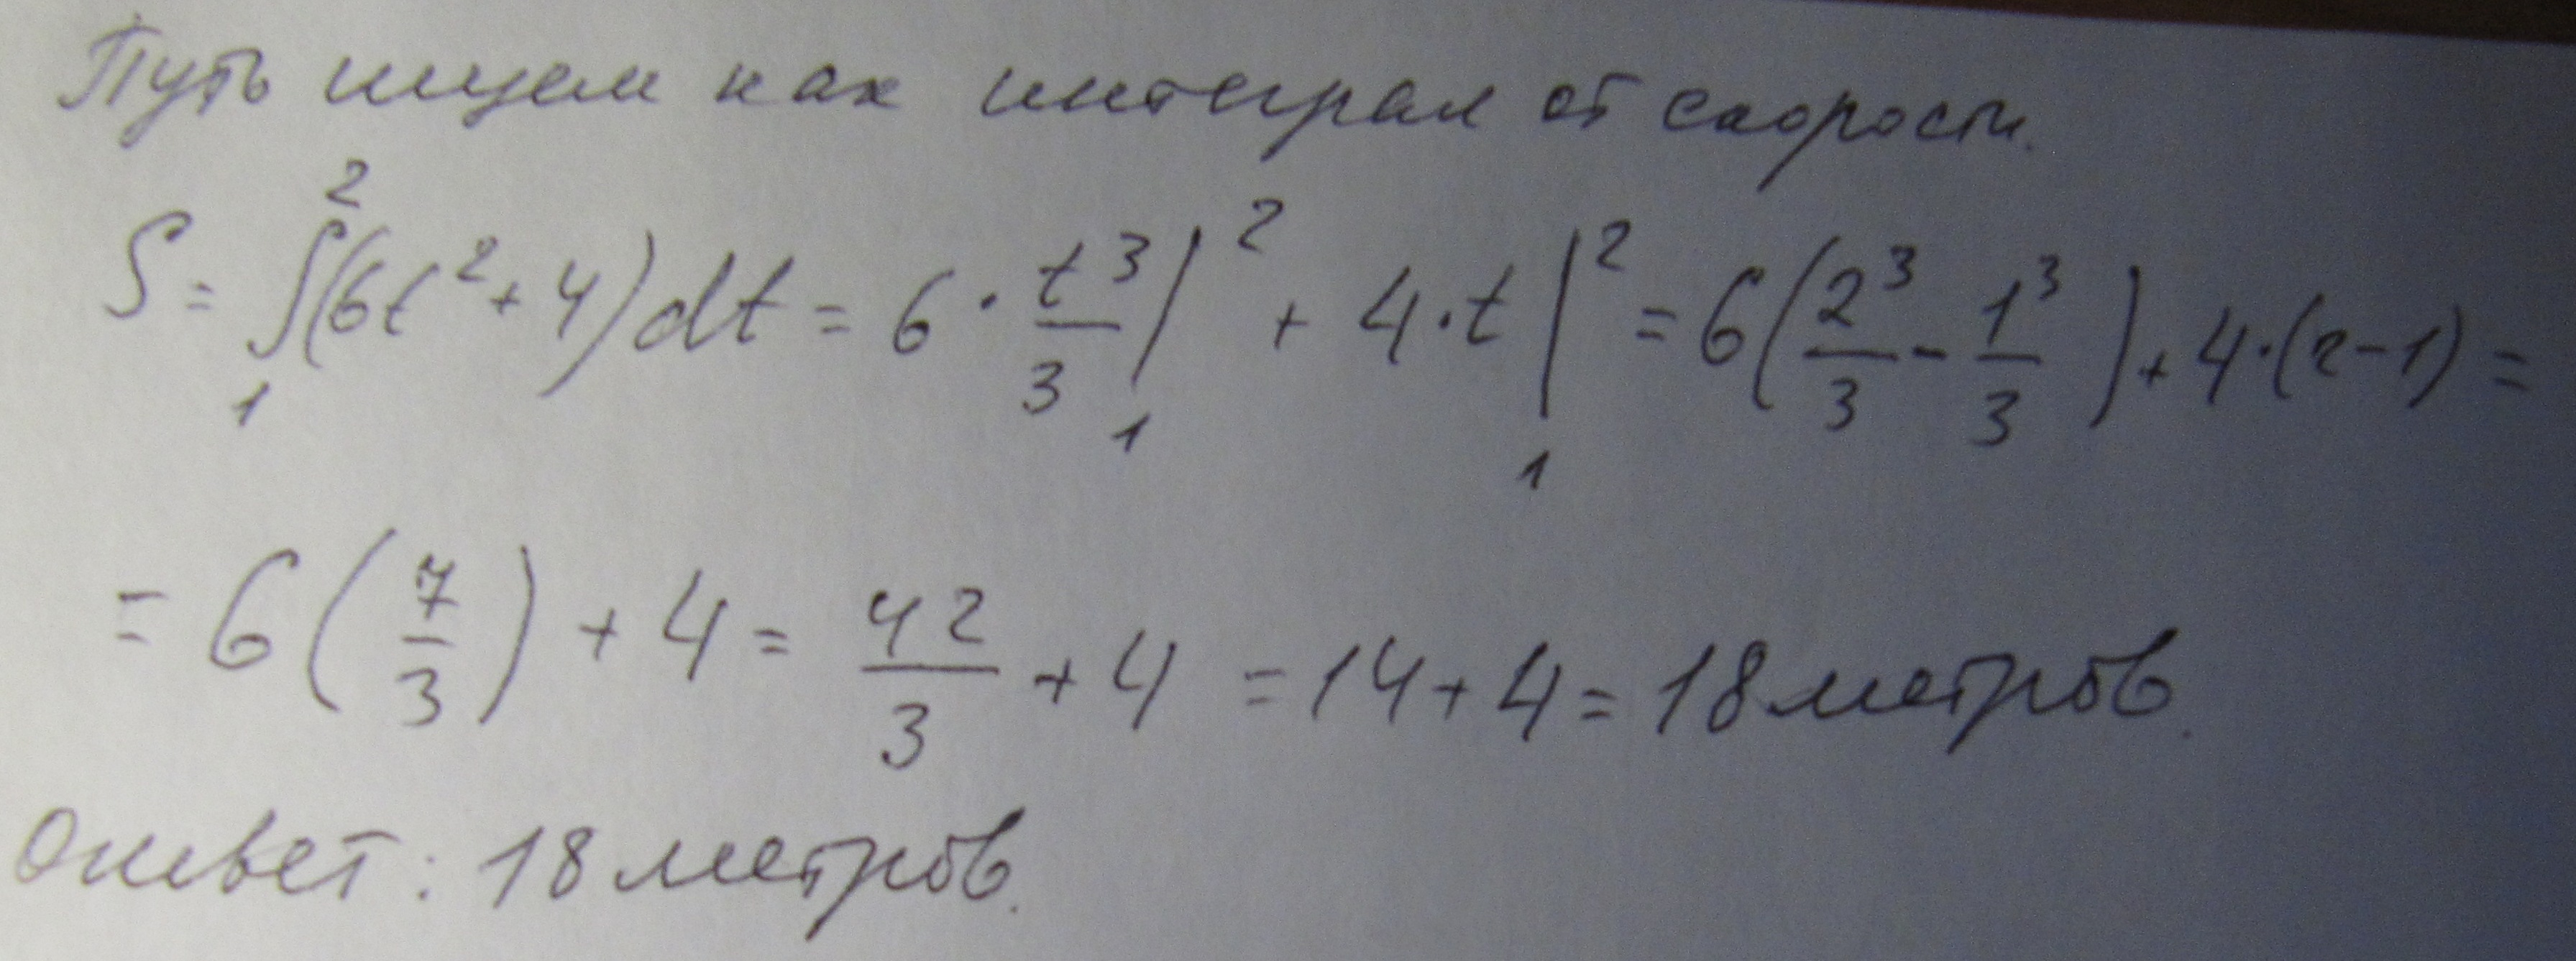 Путь ищем как интеграл от скорости.
S = ∫₁²(6t² + 4)dt = 6 · t³/3 |₁² + 4 · t |₁² = 6(2³/3 - 1³/3) + 4 · (2 - 1) =
= 6(7/3) + 4 = 42/3 + 4 = 14 + 4 = 18 метров.
Ответ: 18 метров.